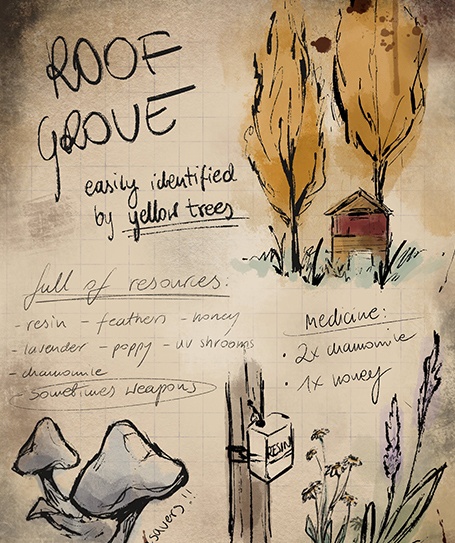 ROOF
GROVE
easily identified
by yellow trees
full of resources:
- resin - feathers - honey
- lavender - poppy - uv shrooms
- chamomile
- Sometimes weapons
Medicine:
• 2x chamomile
• 1x honey
RESIN
savers!!